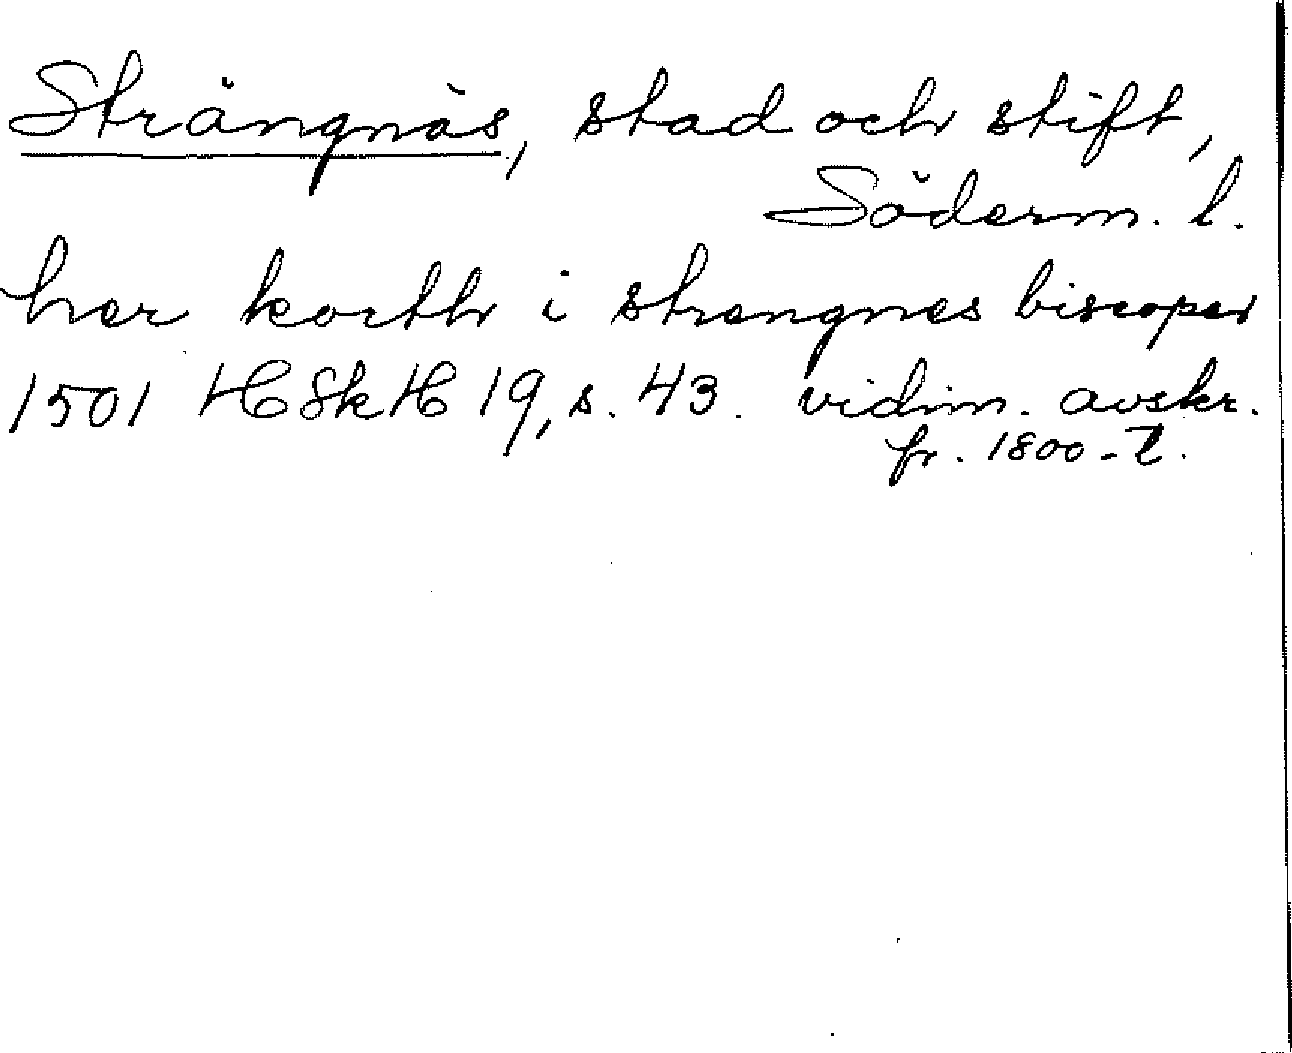 Strängnäs, stad och stift,
Söderm. l.
her korth i strengnes biscoper
1501 HSkH 19, s. 43. vidim. avskr.
fr. 1800-t.